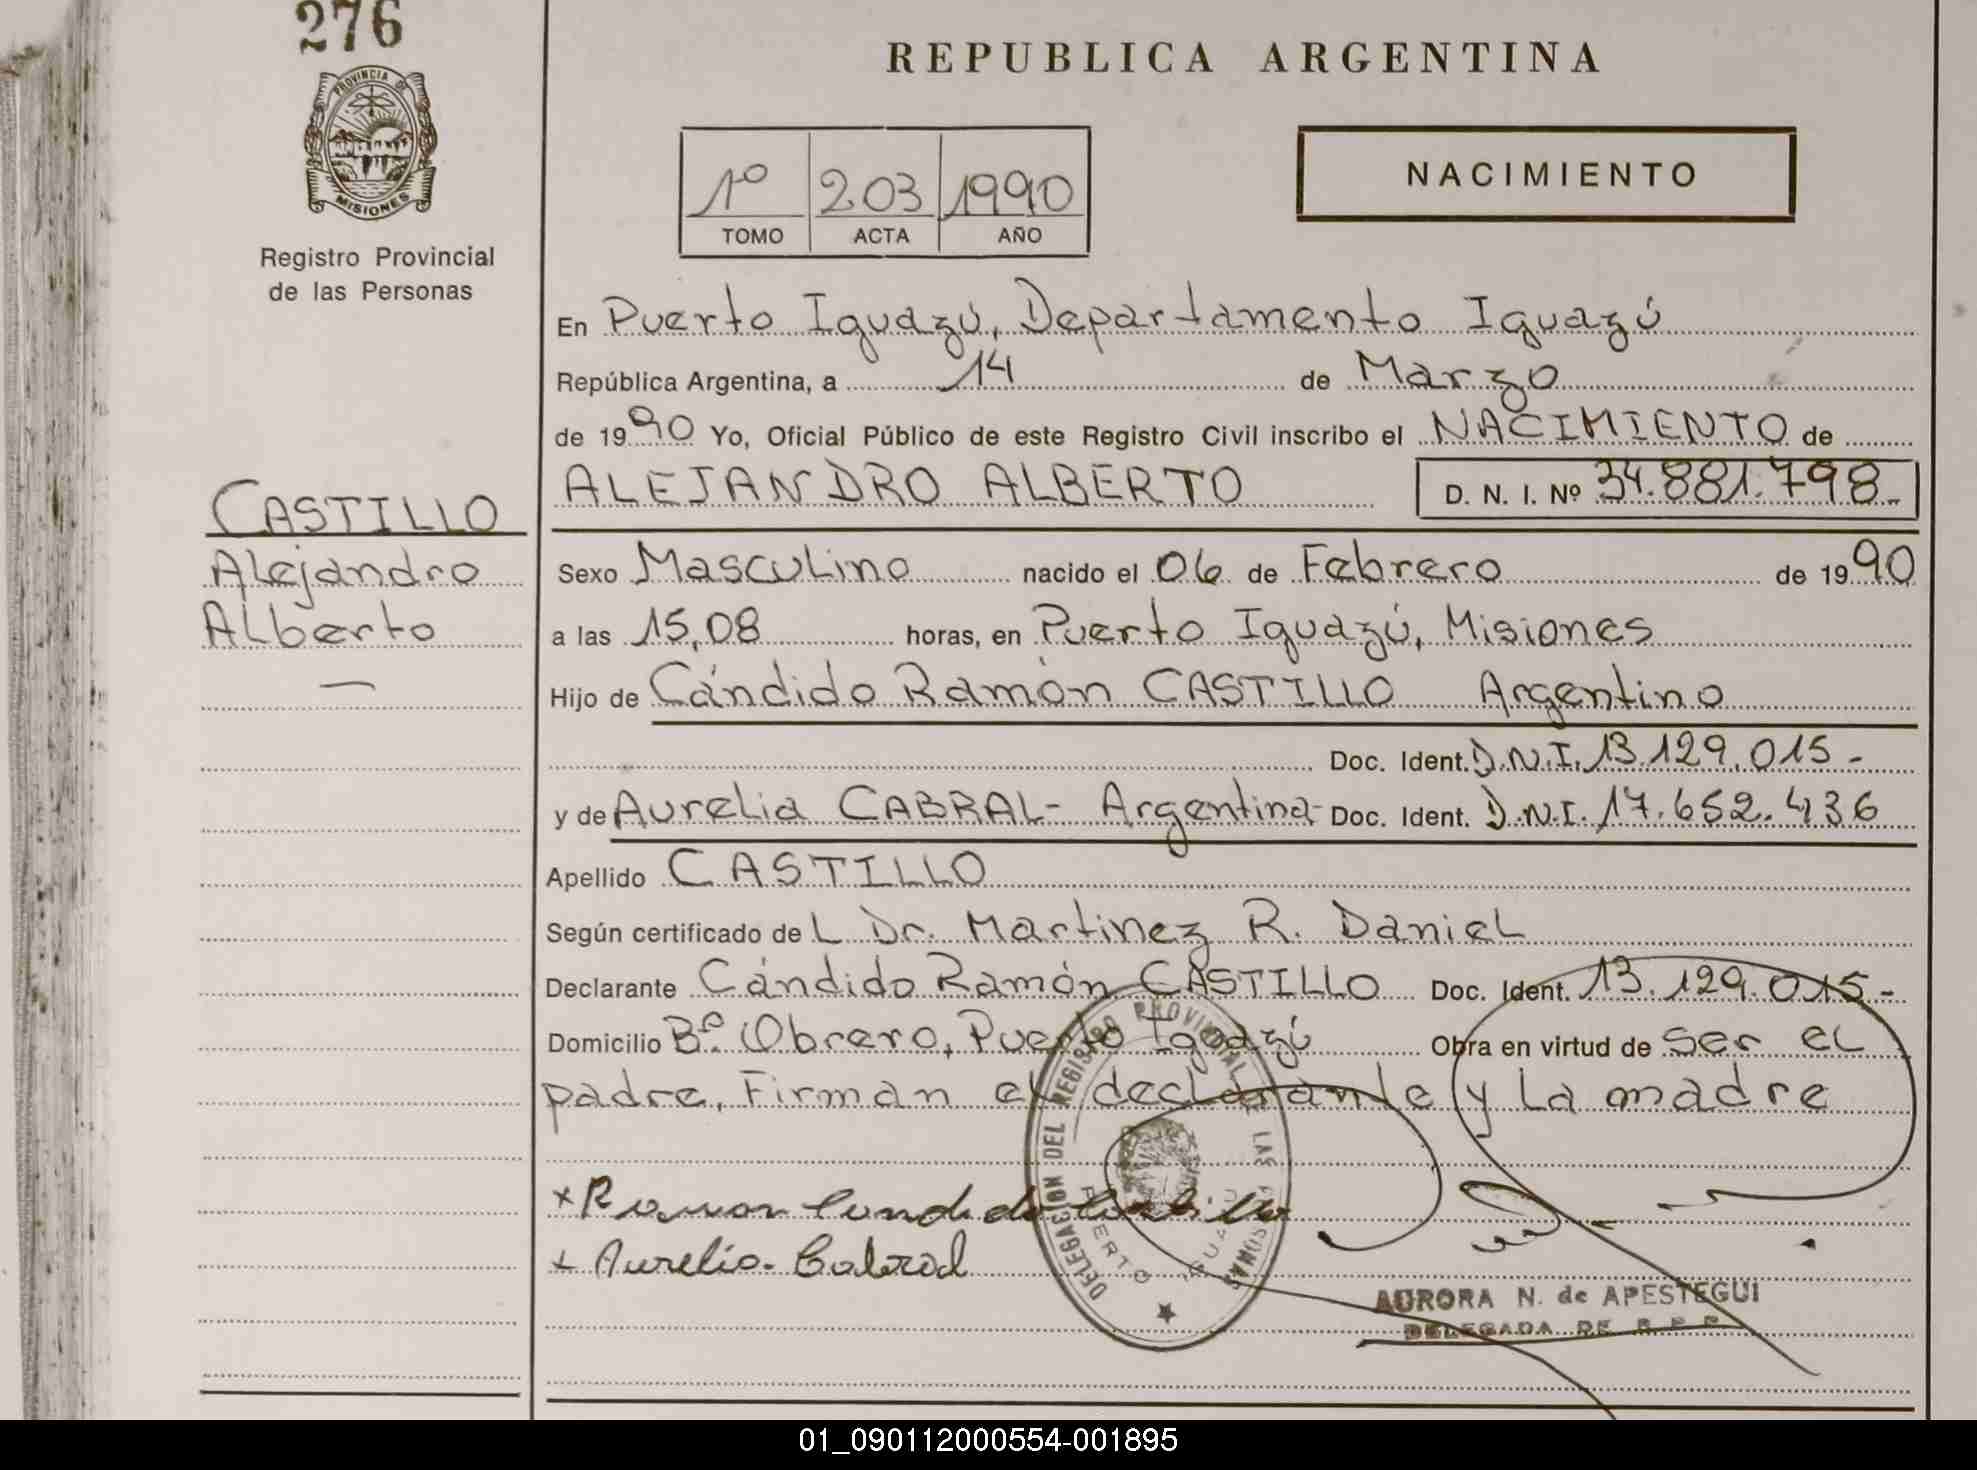 276
PROVINCIA DE
MISIONES
Registro Provincial
de las Personas
REPUBLICA ARGENTINA
1º 203 1990
TOMO ACTA AÑO
NACIMIENTO
En Puerto Iguazú, Departamento Iguazú
República Argentina, a 14 de Marzo
de 1990 Yo, Oficial Público de este Registro Civil inscribo el NACIMIENTO de
ALEJANDRO ALBERTO D. N. I. Nº 34.881.798-
CASTILLO
Alejandro
Alberto
—
Sexo Masculino nacido el 06 de Febrero de 1990
a las 15,08 horas, en Puerto Iguazú, Misiones
Hijo de Cándido Ramón CASTILLO Argentino
Doc. Ident. D.N.I. 13.129.015-
y de Aurelia CABRAL- Argentina- Doc. Ident. D.N.I. 17.652.436
Apellido CASTILLO
Según certificado de L Dr. Martinez R. Daniel
Declarante Cándido Ramón CASTILLO Doc. Ident. 13.129.015-
Domicilio Bº Obrero, Puerto Iguazú Obra en virtud de ser el
padre, Firman el declarante y la madre
x Ramon Candido Castillo
x Aurelia Cabral
DELEGACION DEL REGISTRO PROVINCIAL DE LAS PERSONAS
PUERTO IGUAZU
AURORA N. de APESTEGUI
DELEGADA DE R.P.P.
01_090112000554-001895